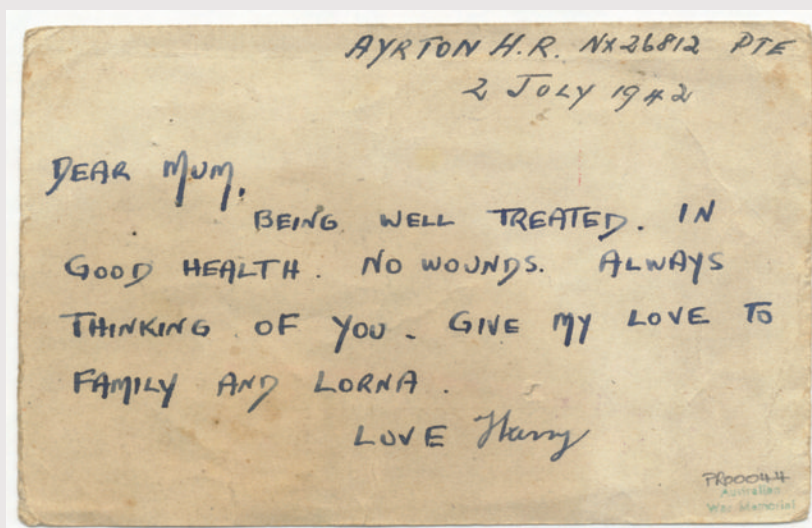 AYRTON H.R. NX26812 PTE
2 JULY 1942
DEAR MUM,
BEING WELL TREATED. IN
GOOD HEALTH. NO WOUNDS. ALWAYS
THINKING OF YOU. GIVE MY LOVE TO
FAMILY AND LORNA.
LOVE Harry
PR00044
Australian
War Memorial